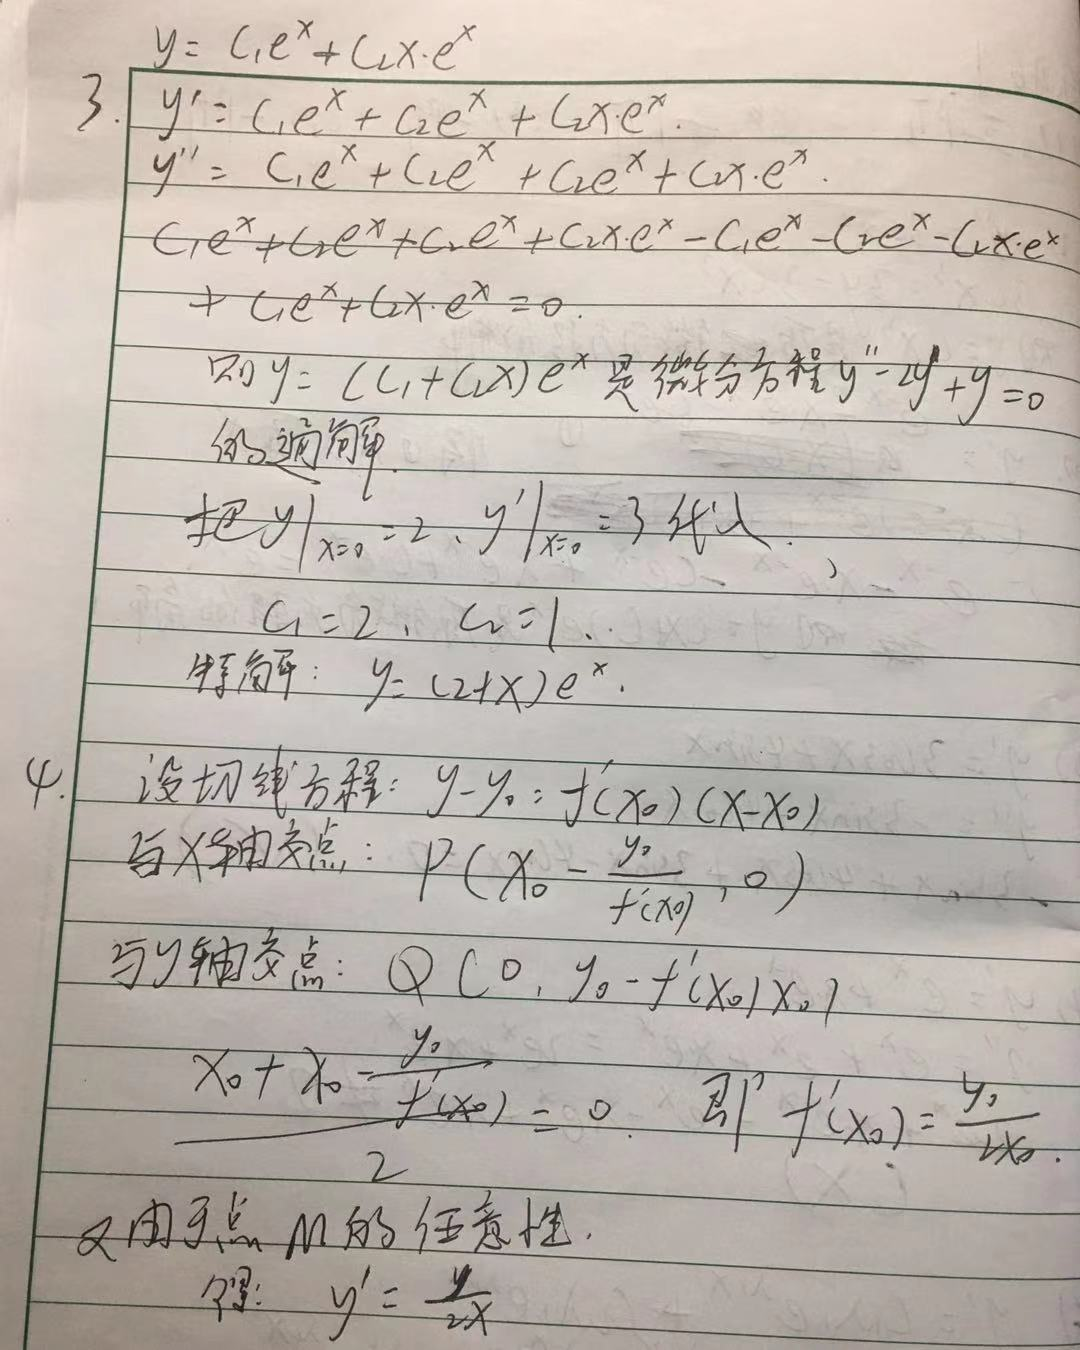 y = C₁eˣ + C₂x·eˣ
3. y' = C₁eˣ + C₂eˣ + C₂x·eˣ.
y'' = C₁eˣ + C₂eˣ + C₂eˣ + C₂x·eˣ.
C₁eˣ + C₂eˣ + C₂eˣ + C₂x·eˣ - C₁eˣ - C₂eˣ - C₂x·eˣ
+ C₁eˣ + C₂x·eˣ = 0.
则 y = (C₁ + C₂x)eˣ 是微分方程 y'' - 2y' + y = 0
的通解.
把 y|ₓ₌₀ = 2、y'|ₓ₌₀ = 3 代入.,
C₁ = 2、C₂ = 1..
特解: y = (2+x)eˣ.
4. 设切线方程: y - y₀ = f'(x₀)(x - x₀)
与X轴交点: P(x₀ - y₀/f'(x₀), 0)
与y轴交点: Q(0, y₀ - f'(x₀)x₀)
(x₀ + x₀ - y₀/f'(x₀))/2 = 0. 即 f'(x₀) = y₀/2x₀.
又由于点M的任意性.
得: y' = y/2x